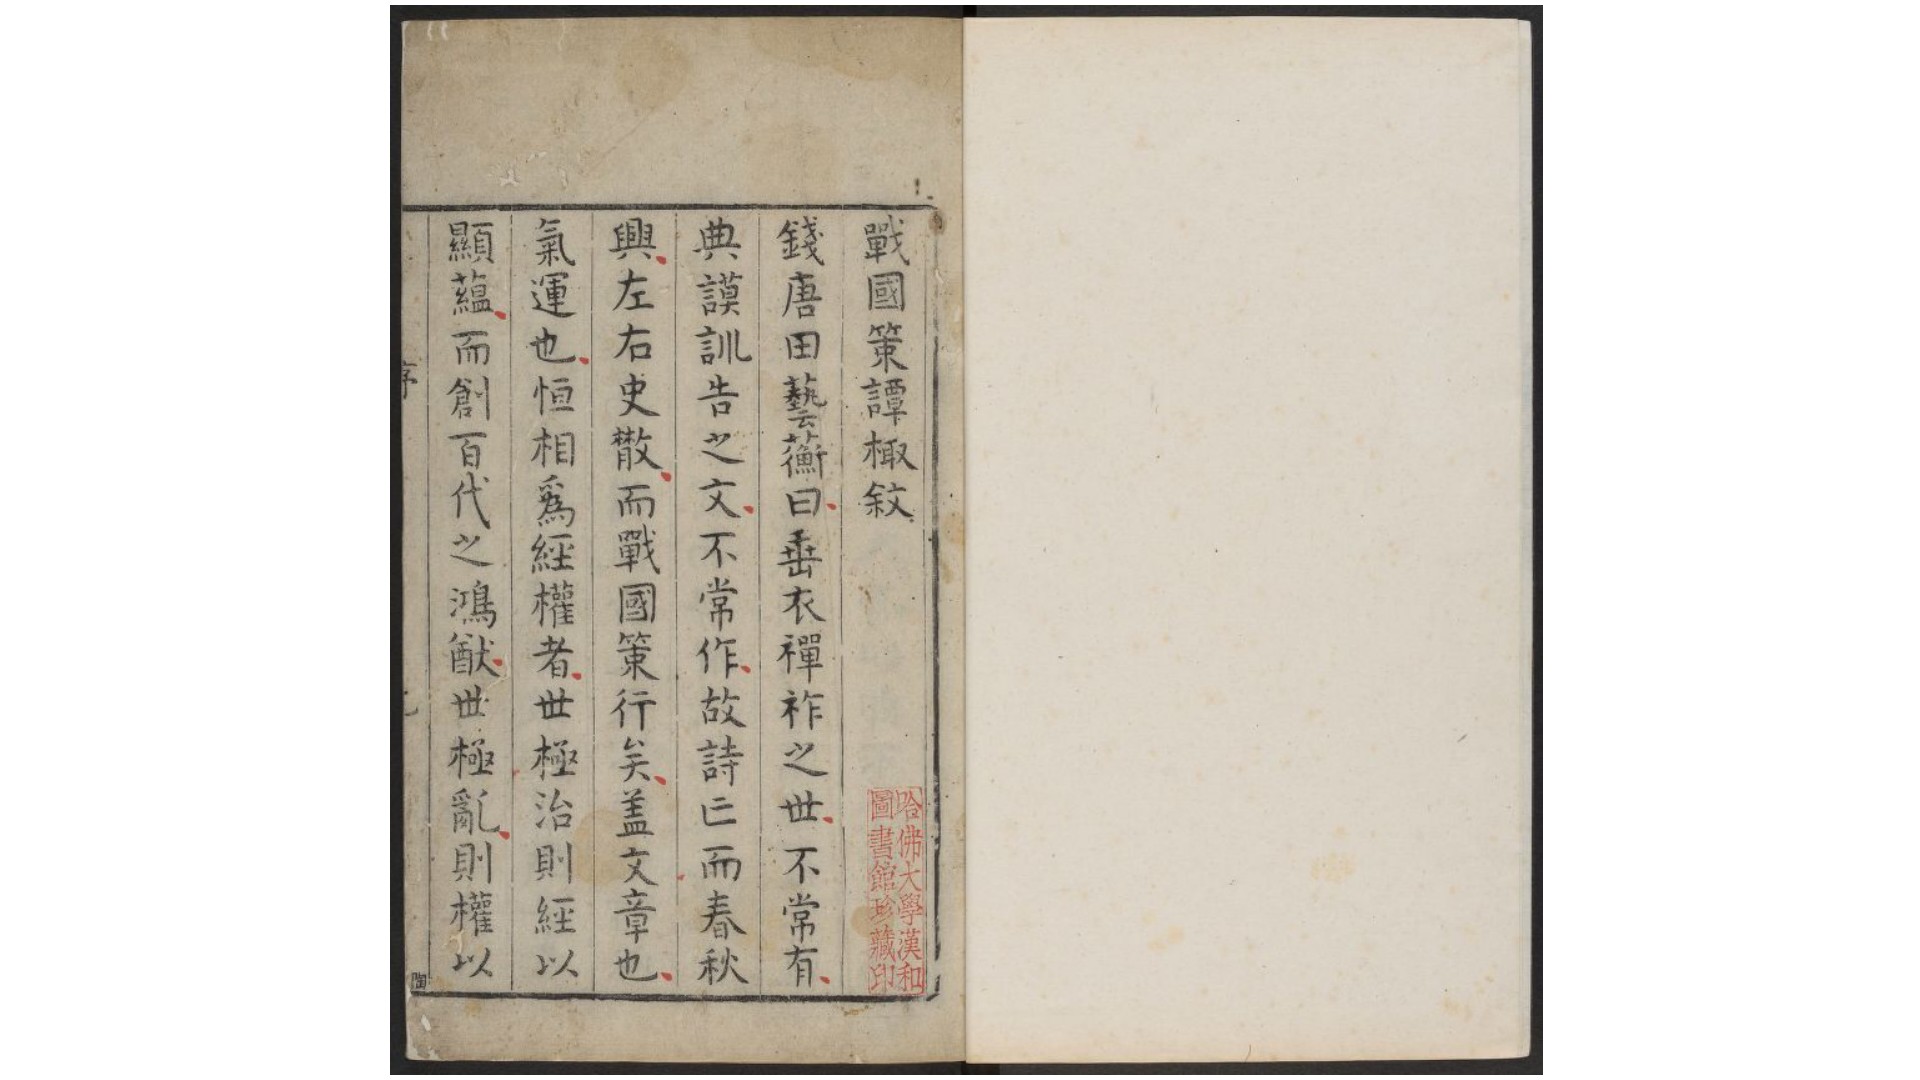 戰國策譚棷敘
錢唐田藝蘅曰垂衣禪祚之世不常有
典謨訓告之文不常作故詩亡而春秋
興左右史散而戰國策行矣盖文章也
氣運也恒相爲經權者世極治則經以
顯蘊而創百代之鴻猷世極亂則權以
序
哈佛大學漢和
圖書館珍藏印
陶